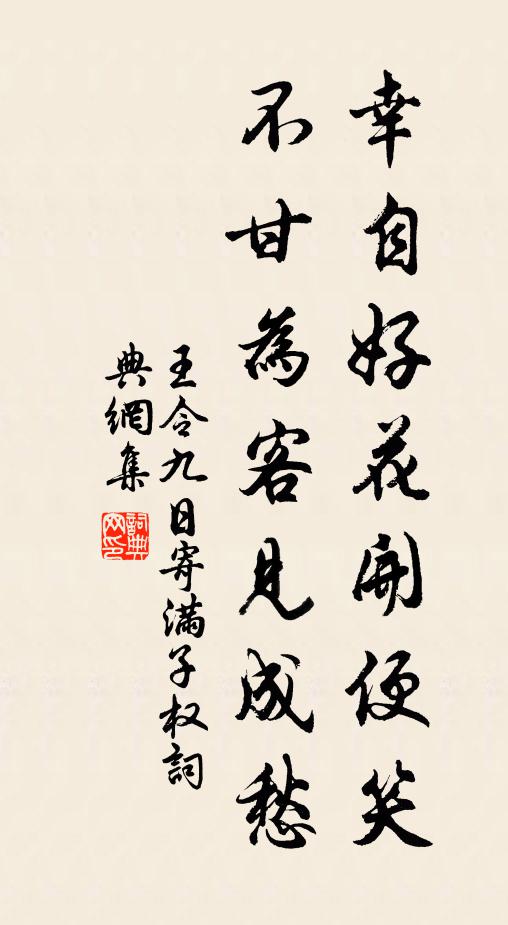 幸自好花開便笑
不甘為客見成愁
王令九日寄滿子权詞
典網集
詞典
网印